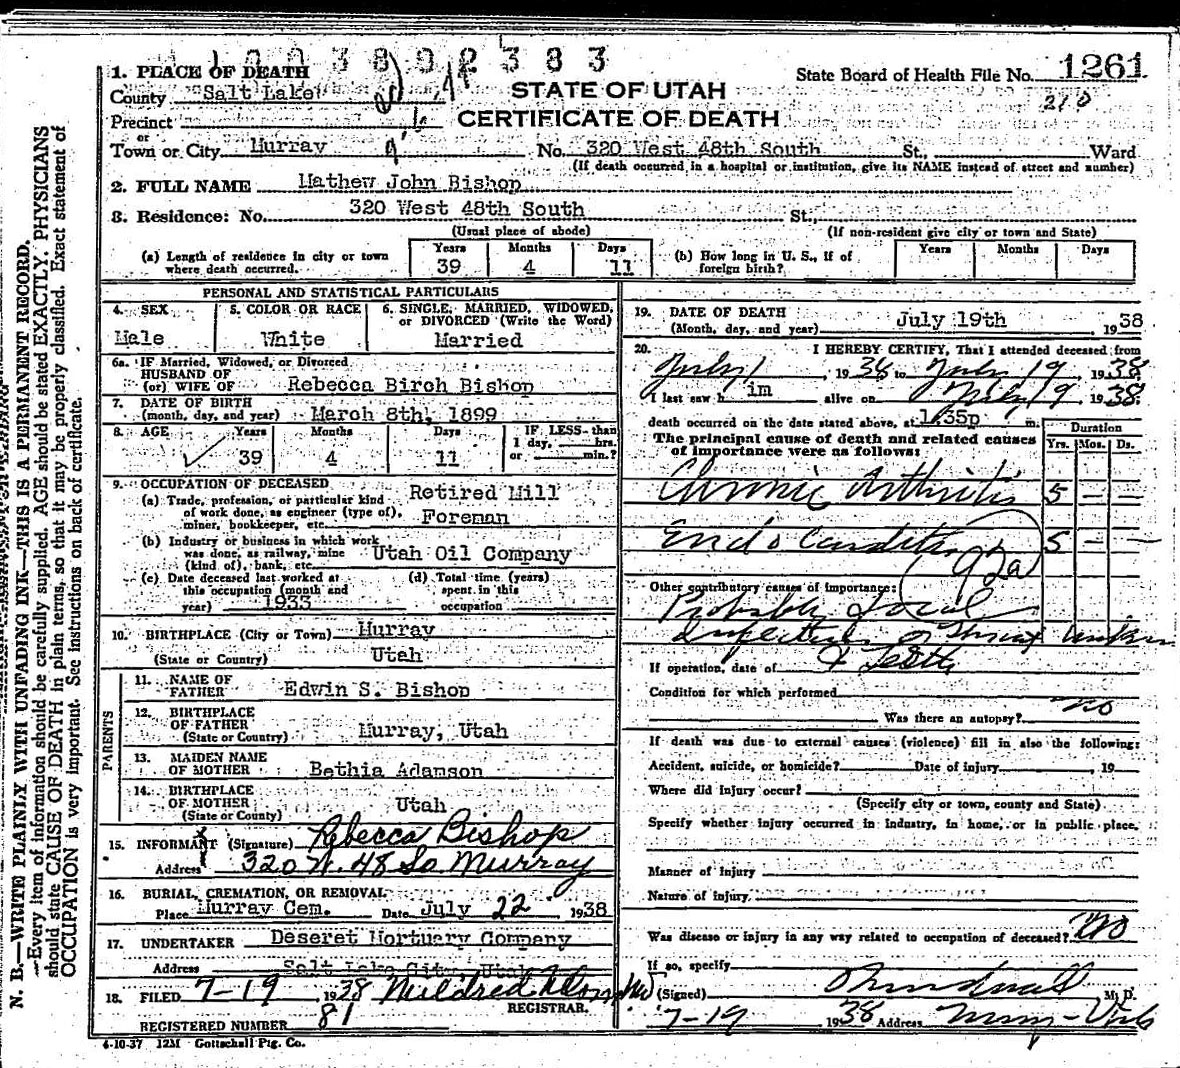 1003802383
1. PLACE OF DEATH
State Board of Health File No. 1261
County Salt Lake
STATE OF UTAH
210
Precinct
CERTIFICATE OF DEATH
or
Town or City Murray No. 320 West 48th South St., Ward
(If death occurred in a hospital or institution, give its NAME instead of street and number)
2. FULL NAME Mathew John Bishop
3. Residence: No. 320 West 48th South St.,
(Usual place of abode) (If non-resident give city or town and State)
(a) Length of residence in city or town where death occurred. Years 39 Months 4 Days 11
(b) How long in U. S., if of foreign birth? Years Months Days
PERSONAL AND STATISTICAL PARTICULARS
4. SEX Male
5. COLOR OR RACE White
6. SINGLE, MARRIED, WIDOWED, or DIVORCED (Write the Word) Married
6a. IF Married, Widowed, or Divorced
HUSBAND OF
(or) WIFE OF Rebecca Birch Bishop
7. DATE OF BIRTH
(month, day, and year) March 8th, 1899
8. AGE Years 39 Months 4 Days 11
IF LESS than 1 day, hrs. or min.?
9. OCCUPATION OF DECEASED
(a) Trade, profession, or particular kind of work done, as engineer (type of), miner, bookkeeper, etc. Retired Mill Foreman
(b) Industry or business in which work was done, as railway, mine (kind of), bank, etc. Utah Oil Company
(c) Date deceased last worked at this occupation (month and year) 1933
(d) Total time (years) spent in this occupation
10. BIRTHPLACE (City or Town) Murray
(State or Country) Utah
PARENTS
11. NAME OF FATHER Edwin S. Bishop
12. BIRTHPLACE OF FATHER
(State or Country) Murray, Utah
13. MAIDEN NAME OF MOTHER Bethia Adamson
14. BIRTHPLACE OF MOTHER
(State or County) Utah
15. INFORMANT (Signature) Rebecca Bishop
Address 320 W. 48 So Murray
16. BURIAL, CREMATION, OR REMOVAL
Place Murray Cem. Date July 22 1938
17. UNDERTAKER Deseret Mortuary Company
Address Salt Lake City, Utah
18. FILED 7-19 1938 Mildred
REGISTRAR.
REGISTERED NUMBER 81
4-10-37 12M Gottschall Ptg. Co.
19. DATE OF DEATH
(Month, day, and year) July 19th 1938
20. I HEREBY CERTIFY, That I attended deceased from
July 1, 1938 to July 19, 1938
I last saw him alive on July 19, 1938
death occurred on the date stated above, at 1:35p m.
The principal cause of death and related causes of importance were as follows:
Duration
Yrs. Mos. Ds.
Chronic Arthritis 5 - -
Endocarditis 5 - -
92a
Other contributory causes of importance:
Probable Focal
Infections of Throat
& Teeth
If operation, date of
Condition for which performed
Was there an autopsy? no
If death was due to external causes (violence) fill in also the following:
Accident, suicide, or homicide? Date of injury, 19
Where did injury occur?
(Specify city or town, county and State)
Specify whether injury occurred in industry, in home, or in public place.
Manner of injury
Nature of injury
Was disease or injury in any way related to occupation of deceased? No
If so, specify
(Signed) M. D.
7-19 1938 Address Murray - Utah
N. B.—WRITE PLAINLY WITH UNFADING INK—THIS IS A PERMANENT RECORD.
—Every item of information should be carefully supplied. AGE should be stated EXACTLY. PHYSICIANS
should state CAUSE OF DEATH in plain terms, so that it may be properly classified. Exact statement of
OCCUPATION is very important. See instructions on back of certificate.